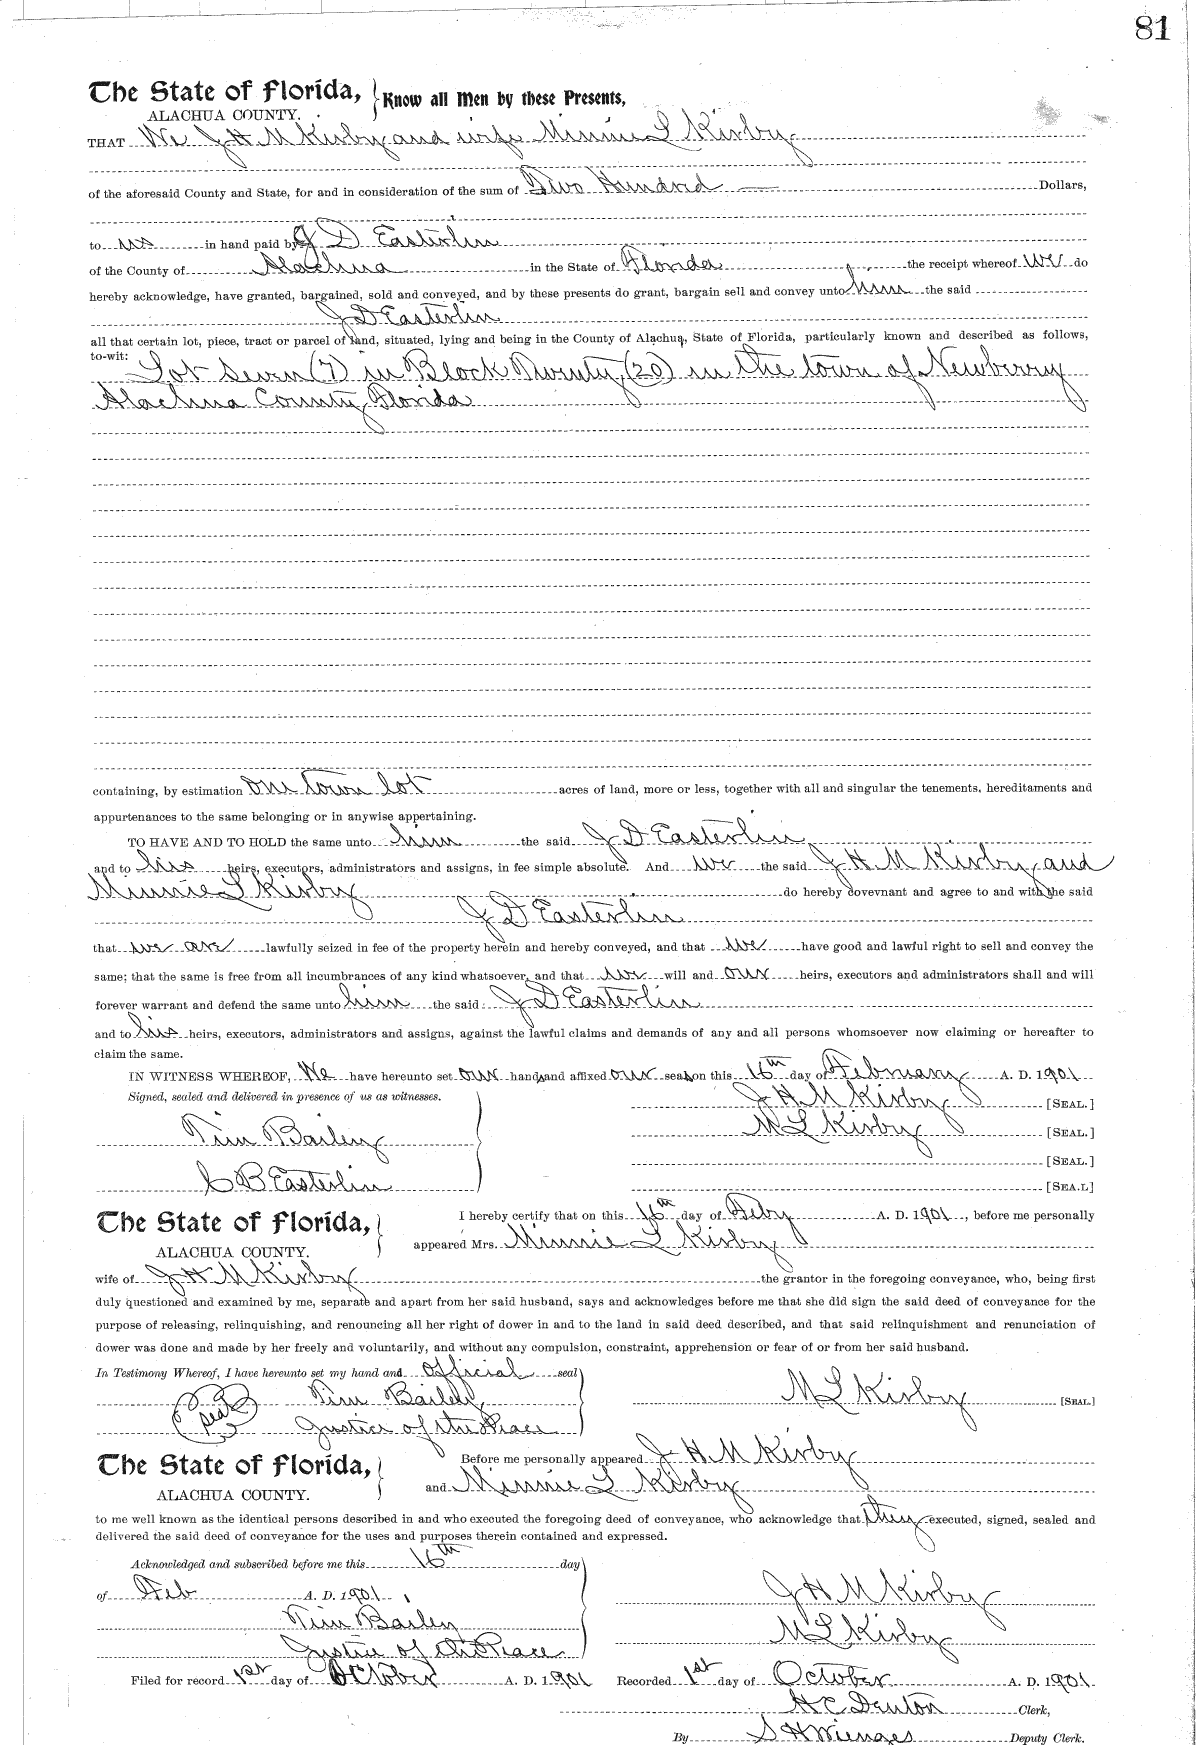 81
The State of Florida, Know all Men by these Presents,
ALACHUA COUNTY.
THAT We J H M Kirby and wife Minnie L Kirby
of the aforesaid County and State, for and in consideration of the sum of Two Hundrd Dollars,
to us in hand paid by J D Easterlin
of the County of Alachua in the State of Florida the receipt whereof we do
hereby acknowledge, have granted, bargained, sold and conveyed, and by these presents do grant, bargain sell and convey unto him the said
J D Easterlin
all that certain lot, piece, tract or parcel of land, situated, lying and being in the County of Alachua, State of Florida, particularly known and described as follows,
to-wit: Lot Seven (7) in Block Twenty (20) in the town of Newberry
Alachua County, Florida
containing, by estimation one town lot acres of land, more or less, together with all and singular the tenements, hereditaments and
appurtenances to the same belonging or in anywise appertaining.
TO HAVE AND TO HOLD the same unto him the said J D Easterlin
and to his heirs, executors, administrators and assigns, in fee simple absolute. And we the said J H M Kirby and
Minnie L Kirby do hereby covevnant and agree to and with the said
J D Easterlin
that we are lawfully seized in fee of the property herein and hereby conveyed, and that we have good and lawful right to sell and convey the
same; that the same is free from all incumbrances of any kind whatsoever, and that we will and our heirs, executors and administrators shall and will
forever warrant and defend the same unto him the said J D Easterlin
and to his heirs, executors, administrators and assigns, against the lawful claims and demands of any and all persons whomsoever now claiming or hereafter to
claim the same.
IN WITNESS WHEREOF, We have hereunto set our hands and affixed our seals on this 16th day of February A. D. 1901
Signed, sealed and delivered in presence of us as witnesses. J H M Kirby [SEAL.]
Tim Bailey M L Kirby [SEAL.]
[SEAL.]
C B Easterlin [SEA.L]
The State of Florida, I hereby certify that on this 16th day of Feby A. D. 1901, before me personally
ALACHUA COUNTY. appeared Mrs. Minnie L Kirby
wife of J H M Kirby the grantor in the foregoing conveyance, who, being first
duly questioned and examined by me, separate and apart from her said husband, says and acknowledges before me that she did sign the said deed of conveyance for the
purpose of releasing, relinquishing, and renouncing all her right of dower in and to the land in said deed described, and that said relinquishment and renunciation of
dower was done and made by her freely and voluntarily, and without any compulsion, constraint, apprehension or fear of or from her said husband.
In Testimony Whereof, I have hereunto set my hand and official seal
Seal Tim Bailey M L Kirby [SEAL.]
Justice of the Peace
The State of Florida, Before me personally appeared J H M Kirby
ALACHUA COUNTY. and Minnie L Kirby
to me well known as the identical persons described in and who executed the foregoing deed of conveyance, who acknowledge that they executed, signed, sealed and
delivered the said deed of conveyance for the uses and purposes therein contained and expressed.
Acknowledged and subscribed before me this 16th day
of Feb A. D. 1901. J H M Kirby
Tim Bailey M L Kirby
Justice of the Peace
Filed for record 1st day of October A. D. 1901 Recorded 1st day of October A. D. 1901
H C Denton Clerk,
By S H Wienges Deputy Clerk.